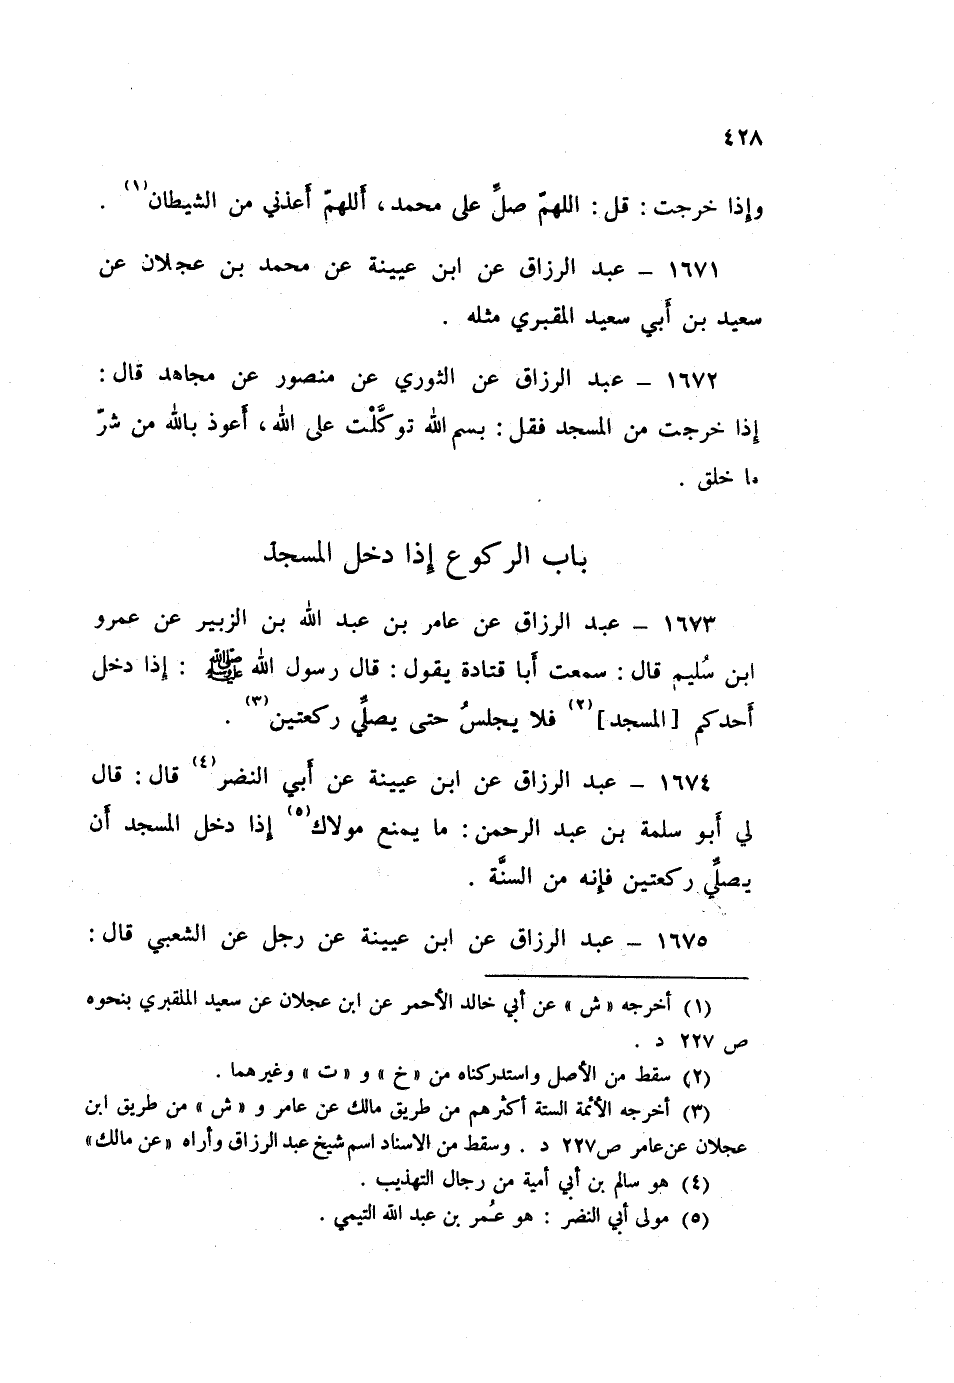 ٤٢٨
وإذا خرجت : قل : اللهمّ صلِّ على محمد ، أللهمّ أعذني من الشيطان(١) .
١٦٧١ – عبد الرزاق عن ابن عيينة عن محمد بن عجلان عن
سعيد بن أبي سعيد المقبري مثله .
١٦٧٢ – عبد الرزاق عن الثوري عن منصور عن مجاهد قال :
إذا خرجت من المسجد فقل : بسم الله توكَّلْت على الله ، أعوذ بالله من شرّ
ما خلق .
باب الركوع إذا دخل المسجد
١٦٧٣ – عبد الرزاق عن عامر بن عبد الله بن الزبير عن عمرو
ابن سُليم قال : سمعت أبا قتادة يقول : قال رسول الله ﷺ : إذا دخل
أحدكم [المسجد](٢) فلا يجلسُ حتى يصلِّي ركعتين(٣) .
١٦٧٤ – عبد الرزاق عن ابن عيينة عن أبي النضر(٤) قال : قال
لي أبو سلمة بن عبد الرحمن : ما يمنع مولاك(٥) إذا دخل المسجد أن
يصلِّي ركعتين فإنه من السنَّة .
١٦٧٥ – عبد الرزاق عن ابن عيينة عن رجل عن الشعبي قال :
(١) أخرجه «ش» عن أبي خالد الأحمر عن ابن عجلان عن سعيد الملقبري بنحوه
ص ٢٢٧ د .
(٢) سقط من الأصل واستدركناه من «خ» و «ت» وغيرهما .
(٣) أخرجه الأئمة الستة أكثرهم من طريق مالك عن عامر و «ش» من طريق ابن
عجلان عن عامر ص ٢٢٧ د . وسقط من الاسناد اسم شيخ عبد الرزاق وأراه «عن مالك»
(٤) هو سالم بن أبي أمية من رجال التهذيب .
(٥) مولى أبي النضر : هو عُمر بن عبد الله التيمي .